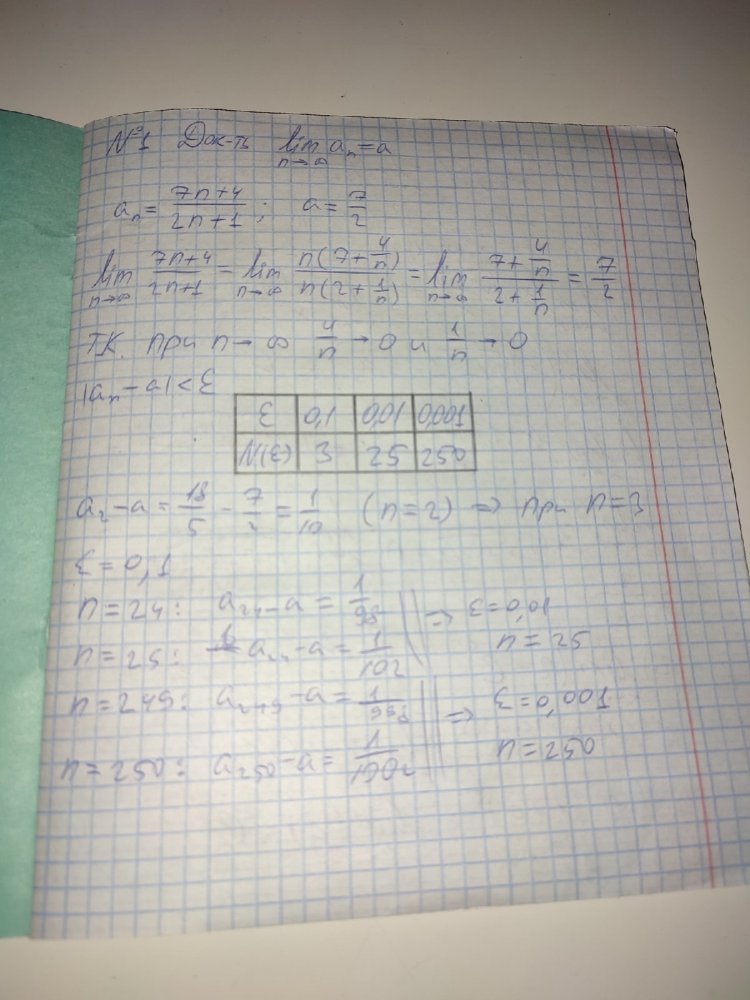 №1 Док-ть lim n→∞ aₙ = a
aₙ = (7n+4)/(2n+1); a = 7/2
lim n→∞ (7n+4)/(2n+1) = lim n→∞ n(7+4/n)/n(2+1/n) = lim n→∞ (7+4/n)/(2+1/n) = 7/2
Т.К. при n→∞ 4/n → 0 и 1/n → 0
|aₙ - a| < ε
ε 0,1 0,01 0,001
N(ε) 3 25 250
a₂ - a = 18/5 - 7/2 = 1/10 (n=2) => при n=3
ε = 0,1
n = 24: a₂₄ - a = 1/98 => ε = 0,01
n = 25: - a = 1/102 n = 25
n = 249: a₂₄₉ - a = 1/998 => ε = 0,001
n = 250: a₂₅₀ - a = 1/1002 n = 250